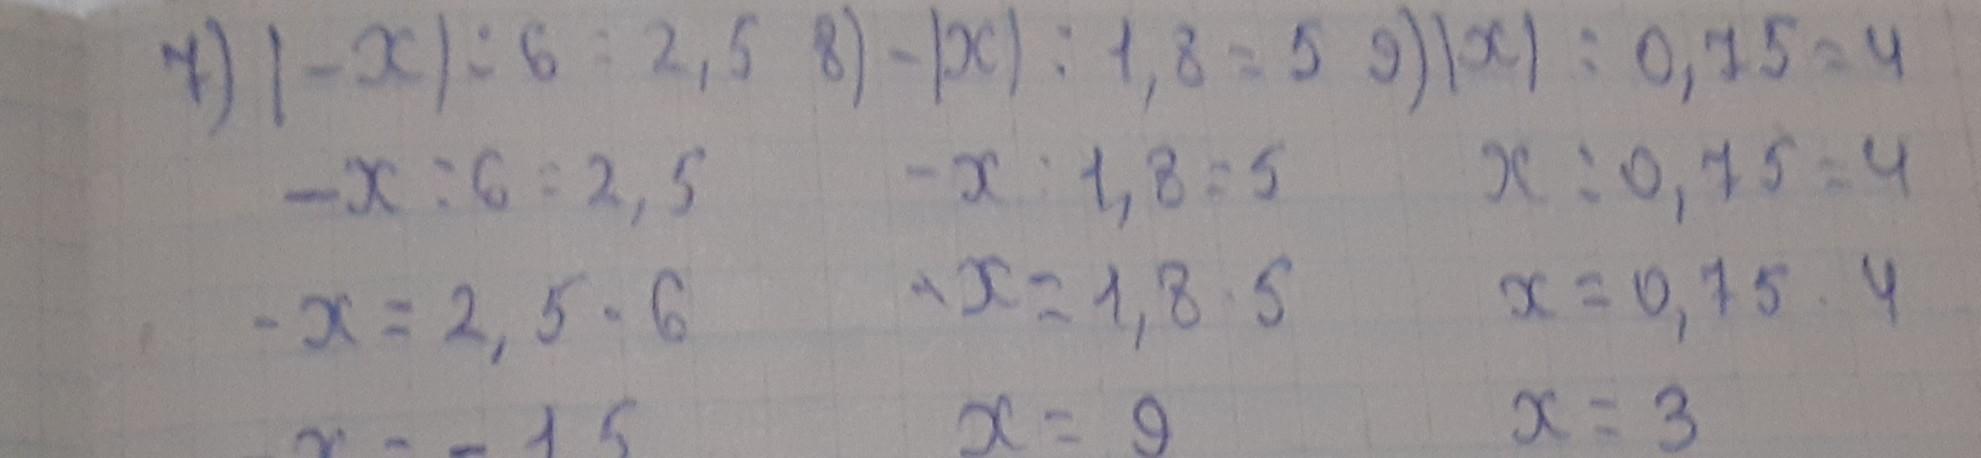 7) |-x| : 6 = 2,5 8) -|x| : 1,8 = 5 9) |x| : 0,75 = 4
-x : 6 = 2,5 -x : 1,8 = 5 x : 0,75 = 4
-x = 2,5 · 6 -x = 1,8 · 5 x = 0,75 · 4
x = -15 x = 9 x = 3